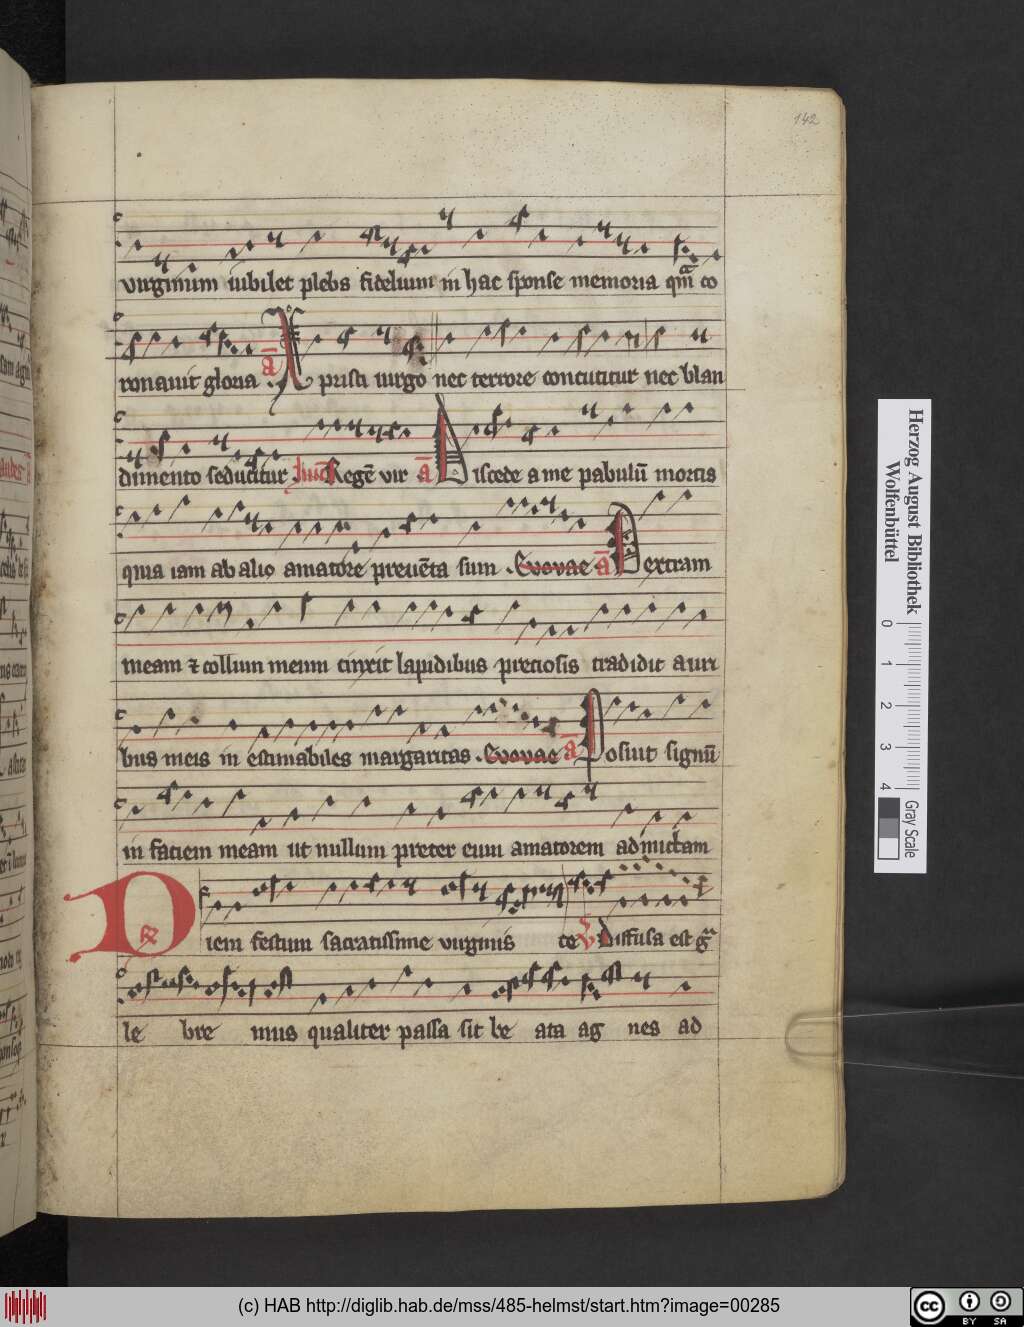 142
virginum iubilet plebs fidelium in hac sponse memoria qm̃ co
ronauit gloria ā xpristi uirgo nec terrore concutitur nec blan
dimento seducitur Regē vir ā Discede a me pabulū mortis
quia iam ab alio amatore preuēta sum . Euovae ā Dexteram
meam ⁊ collum meum cinxit lapidibus preciosis tradidit auri
bus meis in estimabiles margaritas . Euovae ā Posuit signū
in faciem meam ut nullum preter eum amatorem admittam
Diem festum sacratissime virginis ce V Diffusa est gr̃
le bre mus qualiter passa sit be ata ag nes ad
Herzog August Bibliothek
Wolfenbüttel
0 1 2 3 4
Gray Scale
(c) HAB http://diglib.hab.de/mss/485-helmst/start.htm?image=00285
cc BY SA